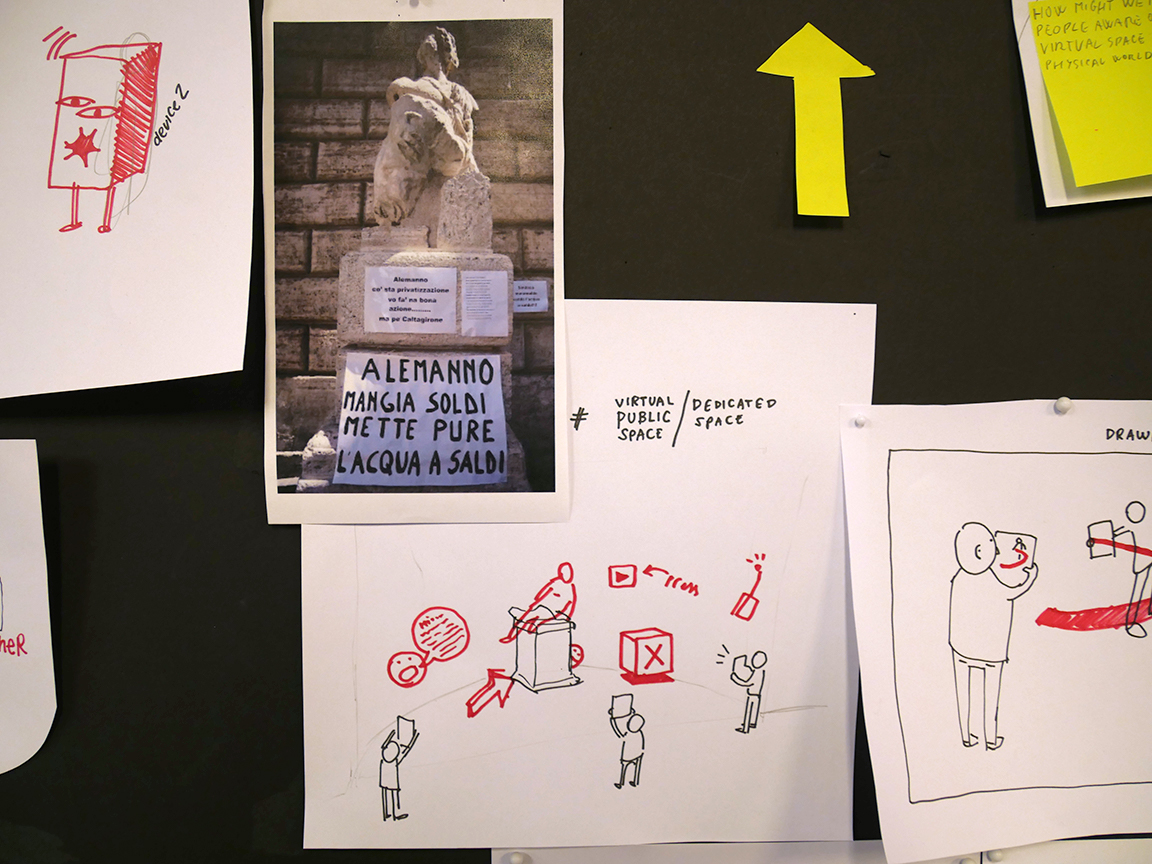 device 2
Alemanno
co' sta privatizzazione
vo fa' na bona
azione..........
ma pe' Caltagirone
ALEMANNO
MANGIA SOLDI
METTE PURE
L'ACQUA A SALDI
HOW MIGHT WE
PEOPLE AWARE
VIRTUAL SPACE
PHYSICAL WORLD
# VIRTUAL PUBLIC SPACE / DEDICATED SPACE
X
DRAW
HER